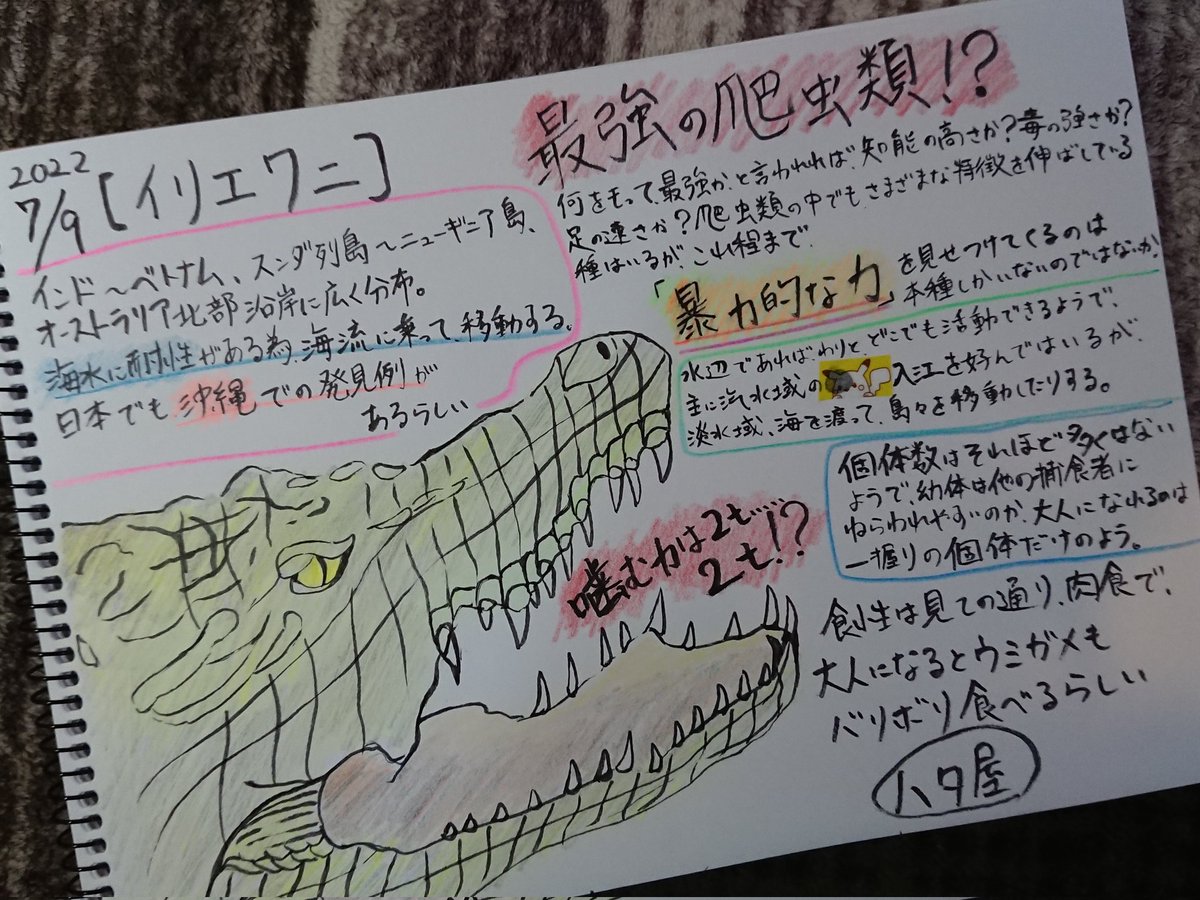 2022
7/9 [イリエワニ]
インド〜ベトナム、スンダ列島〜ニューギニア島、
オーストラリア北部沿岸に広く分布。
海水に耐性がある為、海流に乗って、移動する。
日本でも沖縄での発見例が
あるらしい
最強の爬虫類!?
何をもって最強か、と言われれば、知能の高さか?毒の強さか?
足の速さか?爬虫類の中でも、さまざまな特徴を伸ばしている
種はいるが、これ程まで、
「暴力的な力」を見せつけてくるのは
本種しかいないのではないか。
水辺であれば、わりと、どこでも活動できるようで、
主に汽水域の入江を好んではいるが、
淡水域、海を渡って、島々を移動したりする。
個体数はそれほど多くはない
ようで、幼体は他の捕食者に
ねらわれやすいのか、大人になれるのは
一握りの個体だけのよう。
噛む力は2t…
2t!?
食性は見ての通り、肉食で、
大人になるとウミガメも
バリボリ食べるらしい
ハタ屋